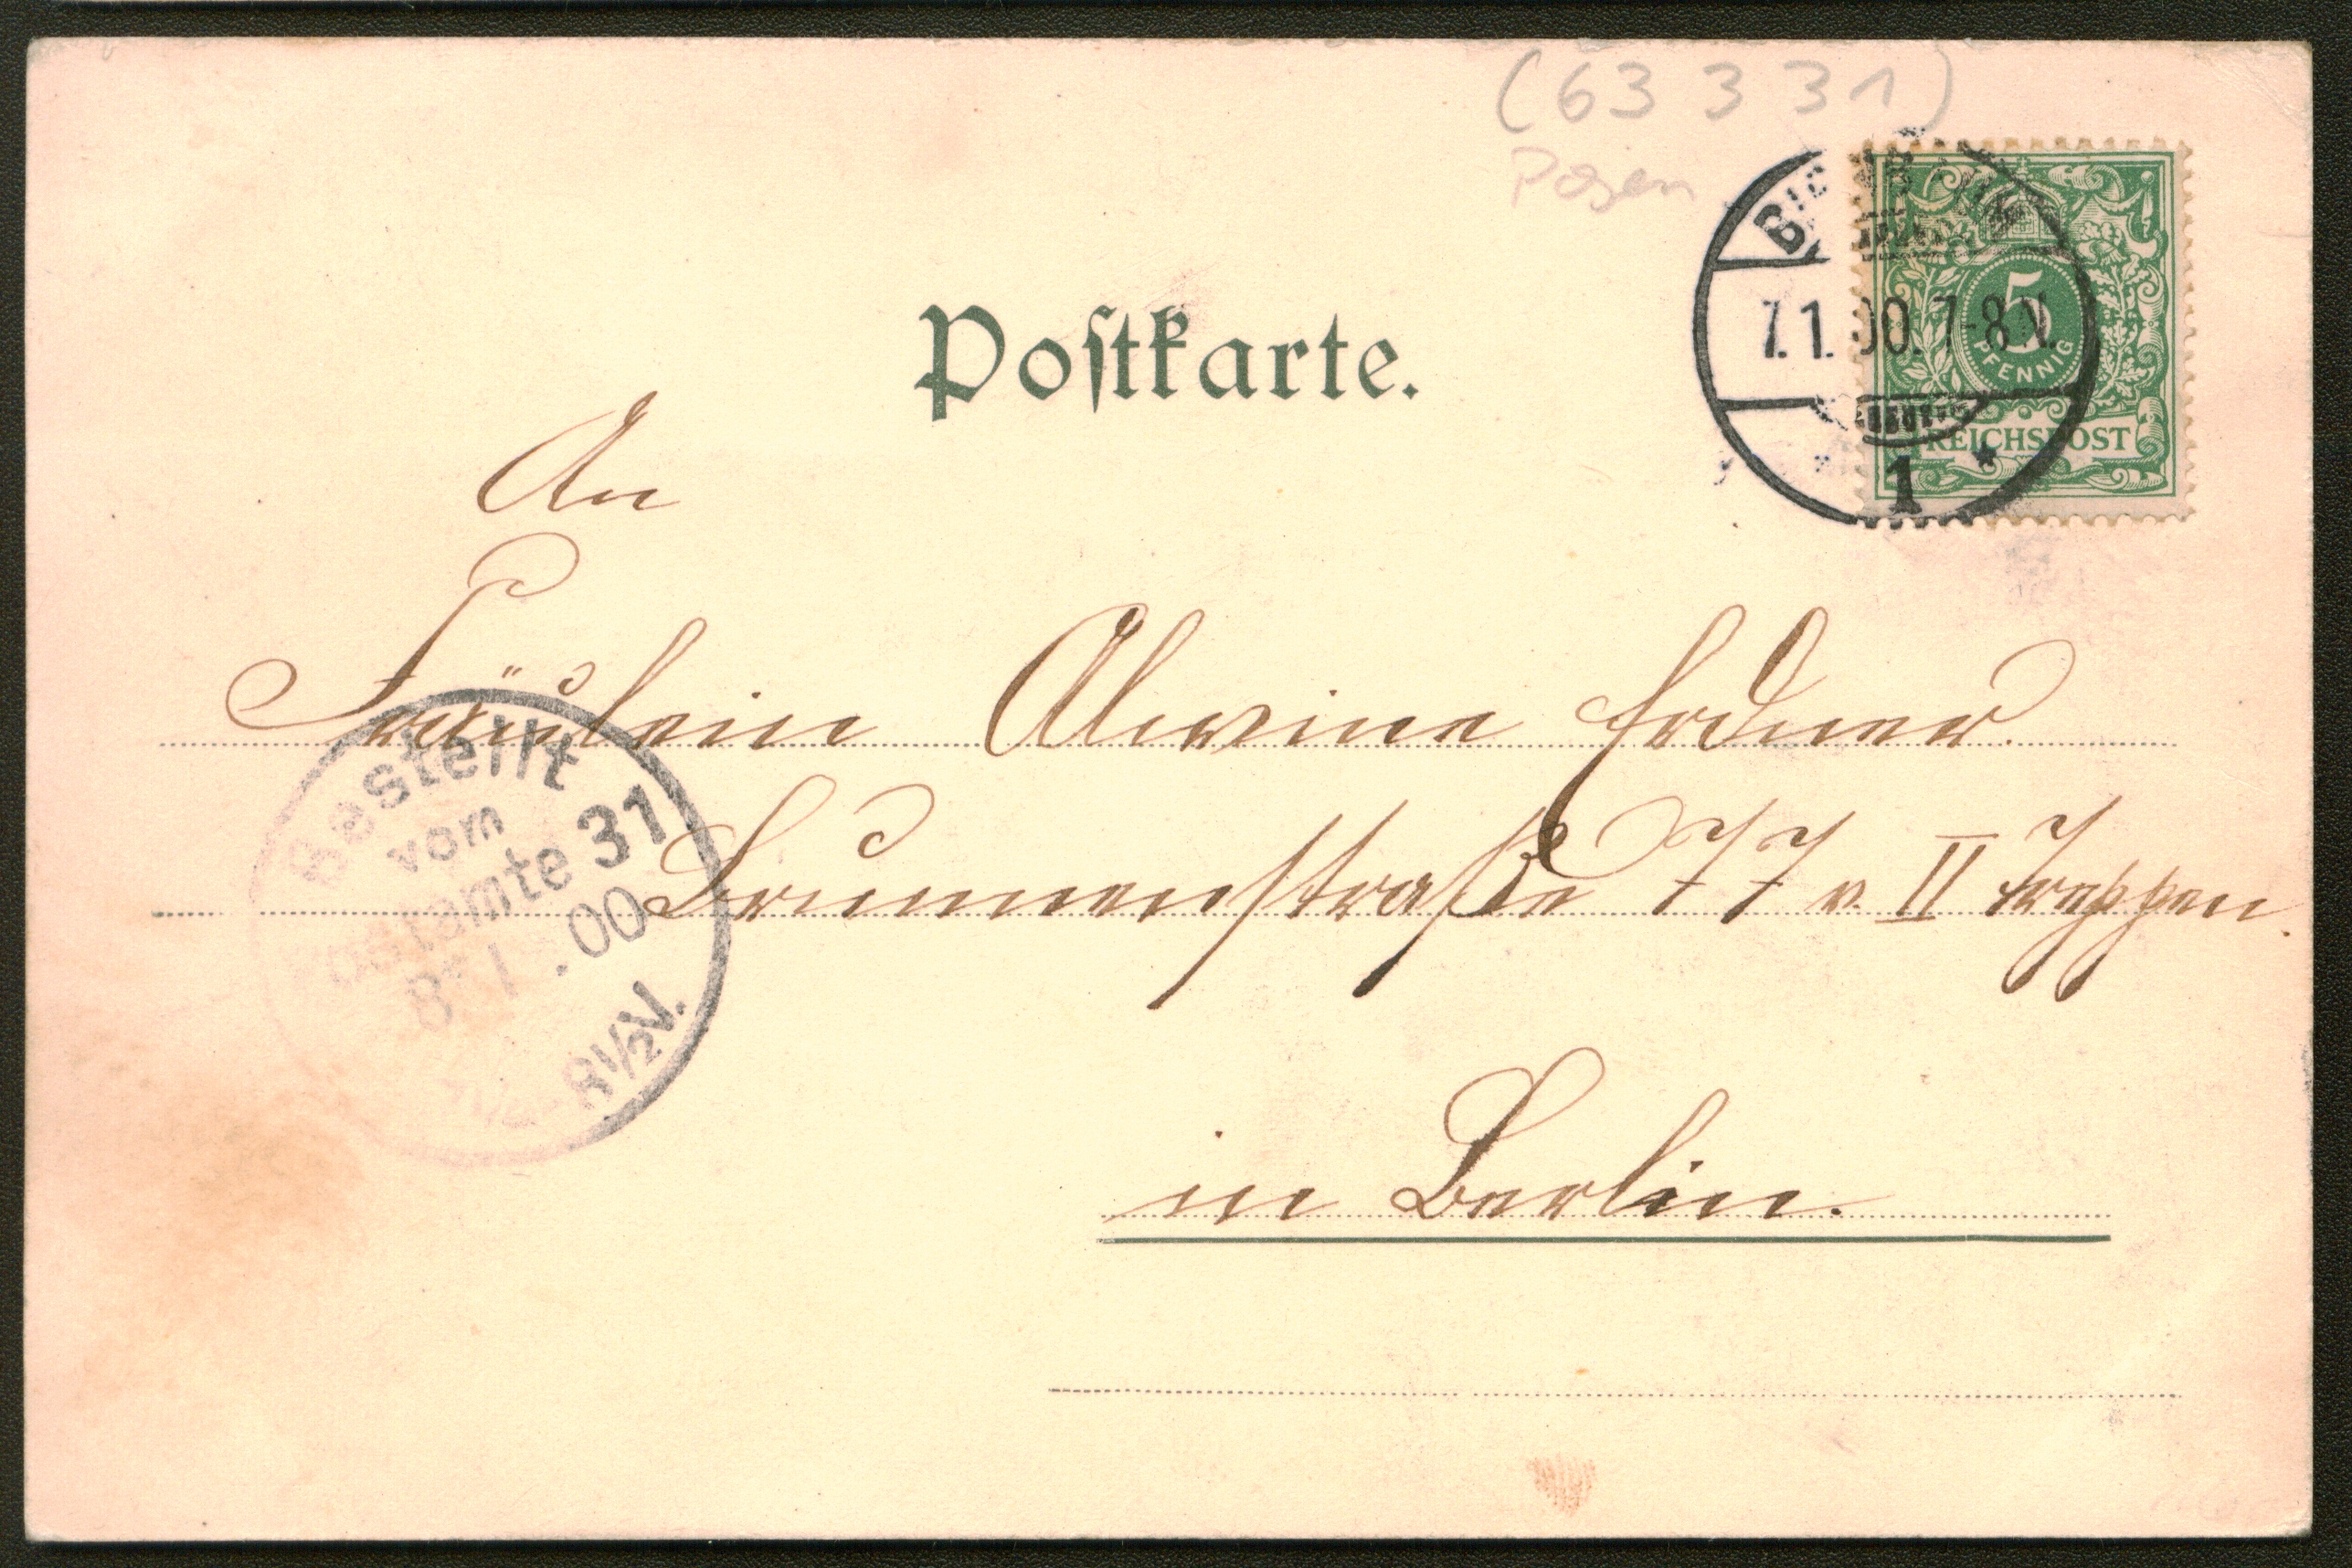 (63 3 31)
Posen
7.1.00.7-8V.
1
5
PFENNIG
REICHSPOST
Poſtkarte.
An
Fräulein Alwine Erdner.
Brunnenstraße 77 v. II Treppen.
in Berlin.
Bestellt
vom
Postamte 31
8. 1 .00
-8½V.